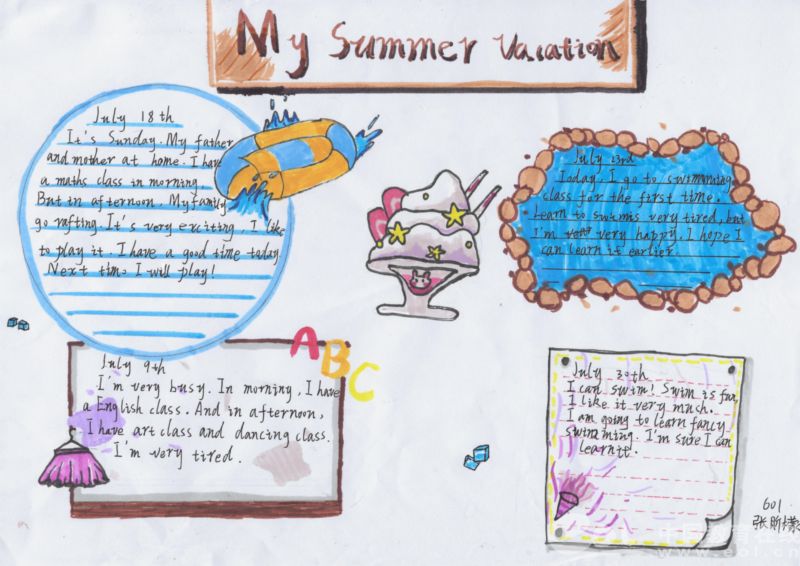 My Summer Vacation
July 18th
It's Sunday. My father
and mother at home. I have
a maths class in morning.
But in afternoon, My family
go rafting. It's very exciting. I like
to play it. I have a good time today.
Next time I will play!
July 23rd
Today, I go to swimming
class for the first time.
Learn to swim is very tired, but
I'm very happy. I hope I
can learn it earlier.
ABC
July 9th
I'm very busy. In morning, I have
a English class. And in afternoon,
I have art class and dancing class.
I'm very tired.
July 30th
I can swim! Swim is fun,
I like it very much.
I am going to learn fancy
swimming. I'm sure I can
learn it.
601
张昕
中国教育在线
www.eol.cn